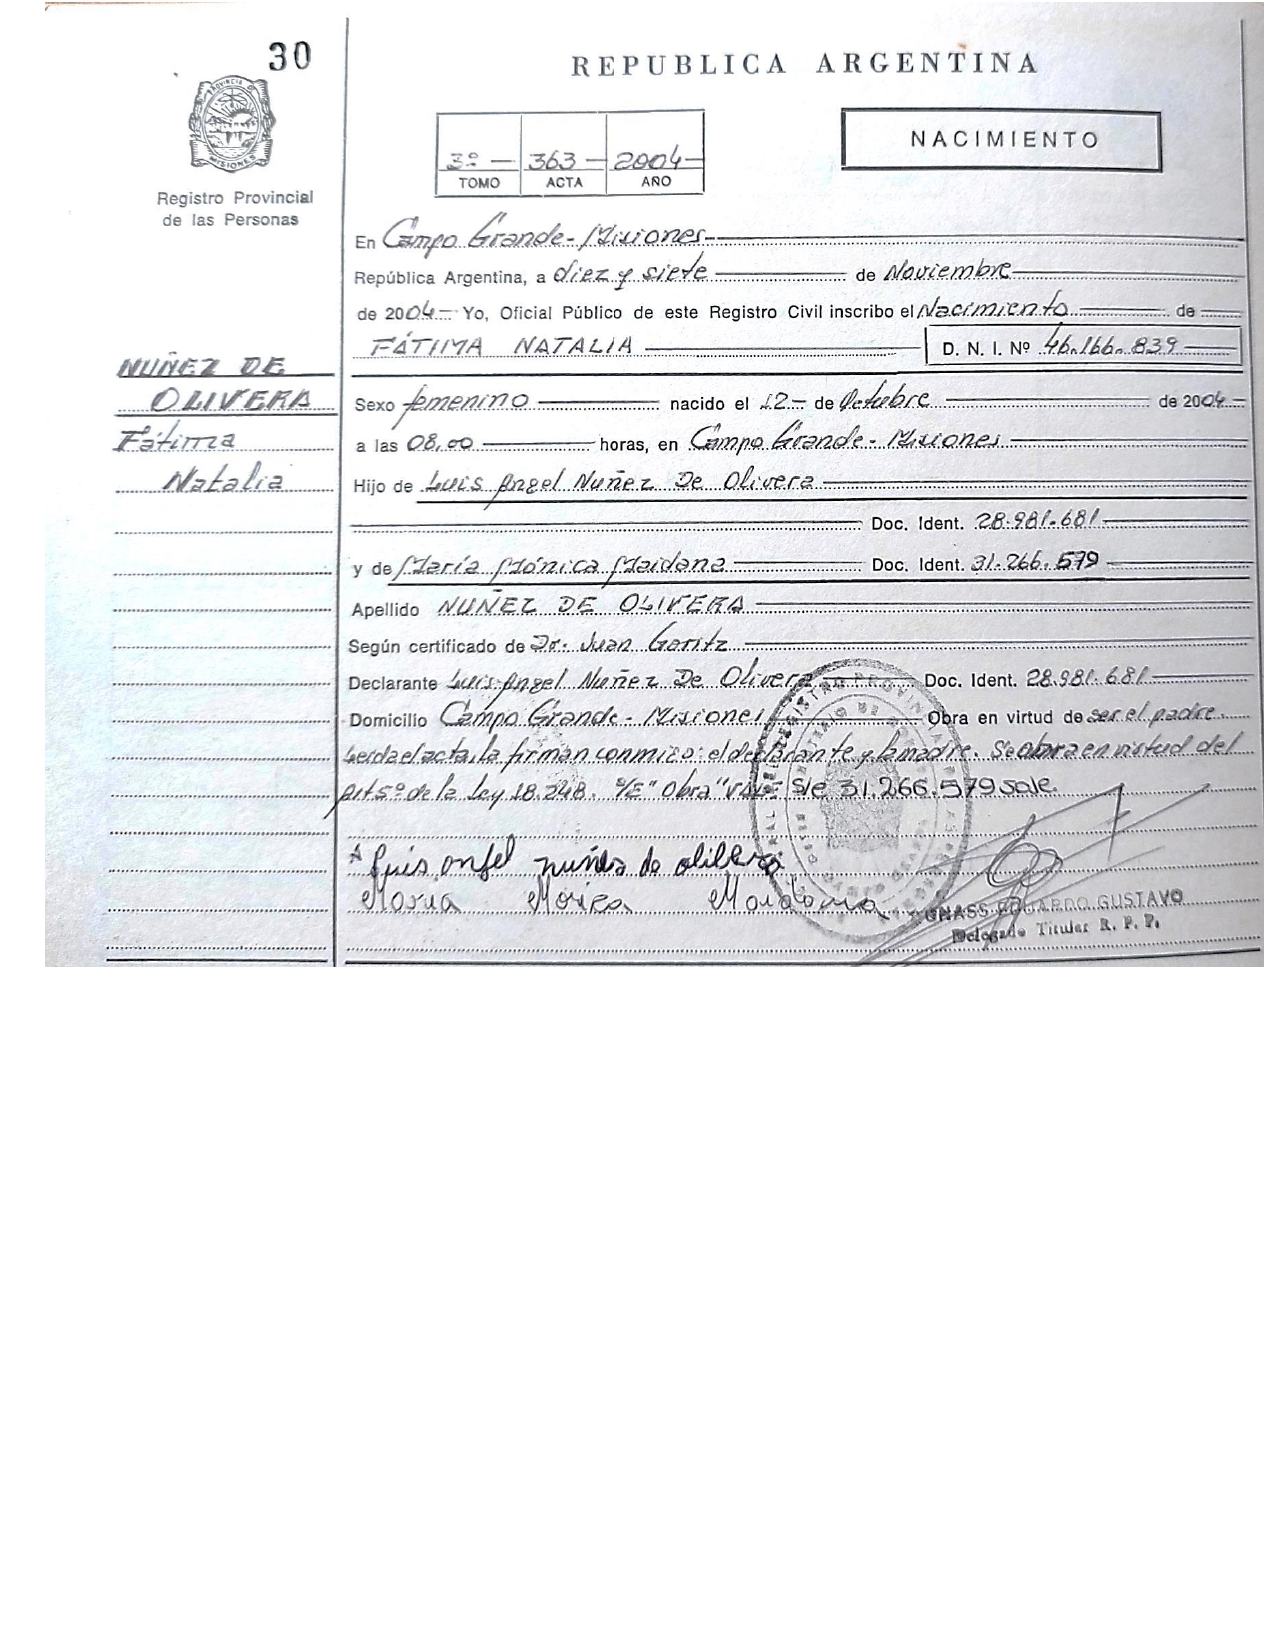 30
REPUBLICA ARGENTINA
PROVINCIA DE MISIONES
Registro Provincial
de las Personas
3º — 363 — 2004
TOMO ACTA AÑO
NACIMIENTO
En Campo Grande - Misiones
República Argentina, a diez y siete de Noviembre
de 2004 Yo, Oficial Público de este Registro Civil inscribo el Nacimiento de
FÁTIMA NATALIA D. N. I. Nº 46.166.839
NUÑEZ DE
OLIVERA
Fátima
Natalia
Sexo femenino nacido el 12 de Octubre de 2004
a las 08,00 horas, en Campo Grande - Misiones
Hijo de Luis Angel Nuñez De Olivera
Doc. Ident. 28.981.681
y de María Mónica Maidana Doc. Ident. 31.266.579
Apellido NUÑEZ DE OLIVERA
Según certificado de Dr. Juan Goritz
Declarante Luis Angel Nuñez De Olivera Doc. Ident. 28.981.681
Domicilio Campo Grande - Misiones Obra en virtud de ser el padre.
Leída el acta, la firman conmigo: el declarante y la madre. Se obra en virtud del
Art 5º de la Ley 18.248. S/E "Obra" VALE S/e 31.266.579 vale.
Luis anfel nuñes de olibera
Maria Monica Maidana
GNASS EDUARDO GUSTAVO
Delegado Titular R. P. P.